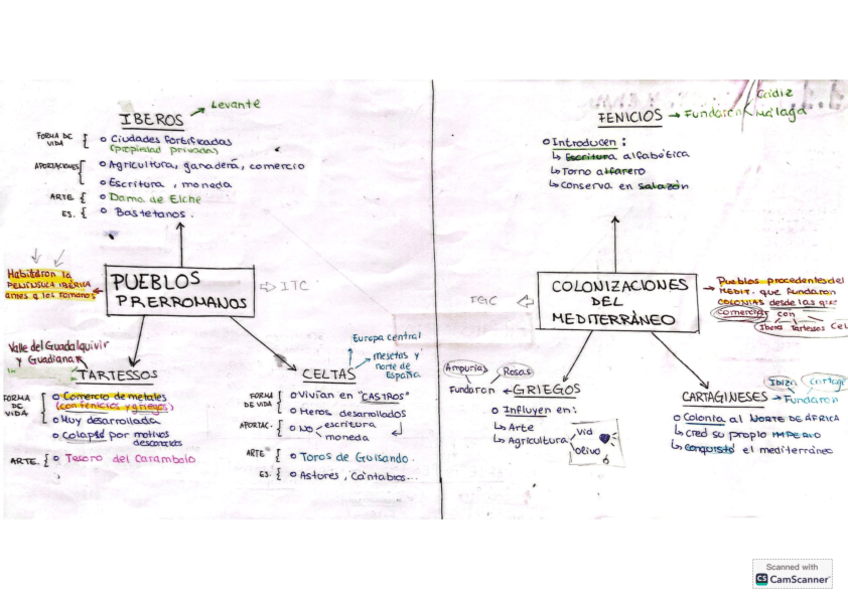 IBEROS → Levante
FORMA DE VIDA { o Ciudades fortificadas
(propiedad privada)
APORTACIONES { o Agricultura, ganadera, comercio
o Escritura, moneda
ARTE { o Dama de Elche
ES. { o Bastetanos.
Habitaron la
PENÍNSULA IBÉRICA
antes q los romanos
PUEBLOS
PRERROMANOS
ITC
Valle del Guadalquivir
y Guadiana
TARTESSOS
FORMA DE VIDA { o Comercio de metales
(con fenicios y griegos)
o Muy desarrollada
o Colapsó por motivos
desconocidos
ARTE. { o Tesoro del Carambolo
Europa central
mesetas y
norte de
España
CELTAS
FORMA DE VIDA { o Vivían en "CASTROS"
o Menos desarrollados
APORTAC. { o NO escritura
moneda
ARTE { o Toros de Guisando.
ES. { o Astores, Cántabros...
FENICIOS → Fundaron Cádiz
Málaga
o Introducen:
↳ Escritura alfabética
↳ Torno alfarero
↳ Conserva en salazón
COLONIZACIONES
DEL
MEDITERRÁNEO
→ Pueblos procedentes del
MEDIT. que fundaron
COLONIAS desde las que
comerciar con
Ibera Tartesos Cel
Ampurias Rosas
Fundaron ← GRIEGOS
o Influyen en:
↳ Arte
↳ Agricultura Vid
olivo
Ibiza Cartag
CARTAGINESES → Fundaron
o Colonia al NORTE DE ÁFRICA
↳ creó su propio IMPERIO
↳ Conquistó el mediterráneo
Scanned with
CS CamScanner